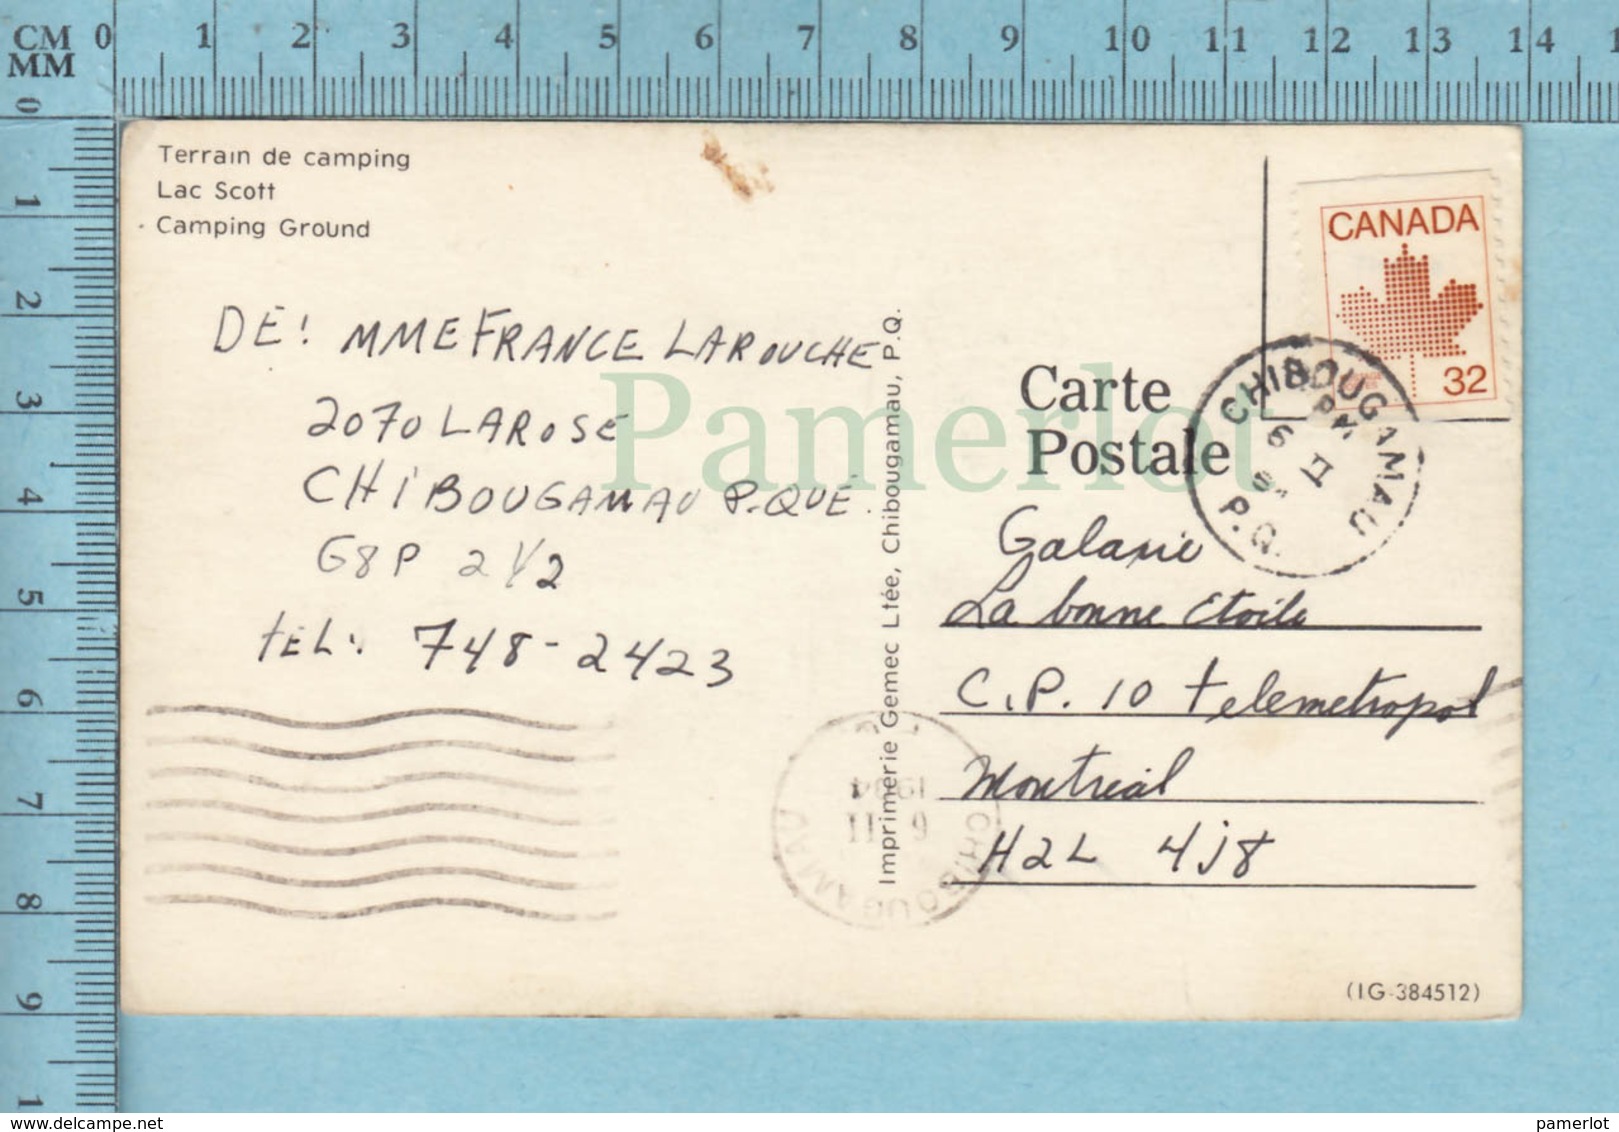 CM 0 1 2 3 4 5 6 7 8 9 10 11 12 13 14
MM
0
1
2
3
4
5
6
7
8
9
1
Terrain de camping
Lac Scott
Camping Ground
DE! MME FRANCE LAROUCHE
2070 LAROSE
CHIBOUGAMAU P.QUÉ.
G8P 2Y2
TEL: 748-2423
Pamerlot
Imprimerie Gemec Ltée, Chibougamau, P.Q.
CANADA
32
Carte
Postale
CHIBOUGAMAU
PM
6 II
P.Q.
Galarie
La bonne Etoile
C.P. 10 telemetropol
Montréal
H2L 4J8
CHIBOUGAMAU
6 II
1984
(IG-384512)
pamerlot